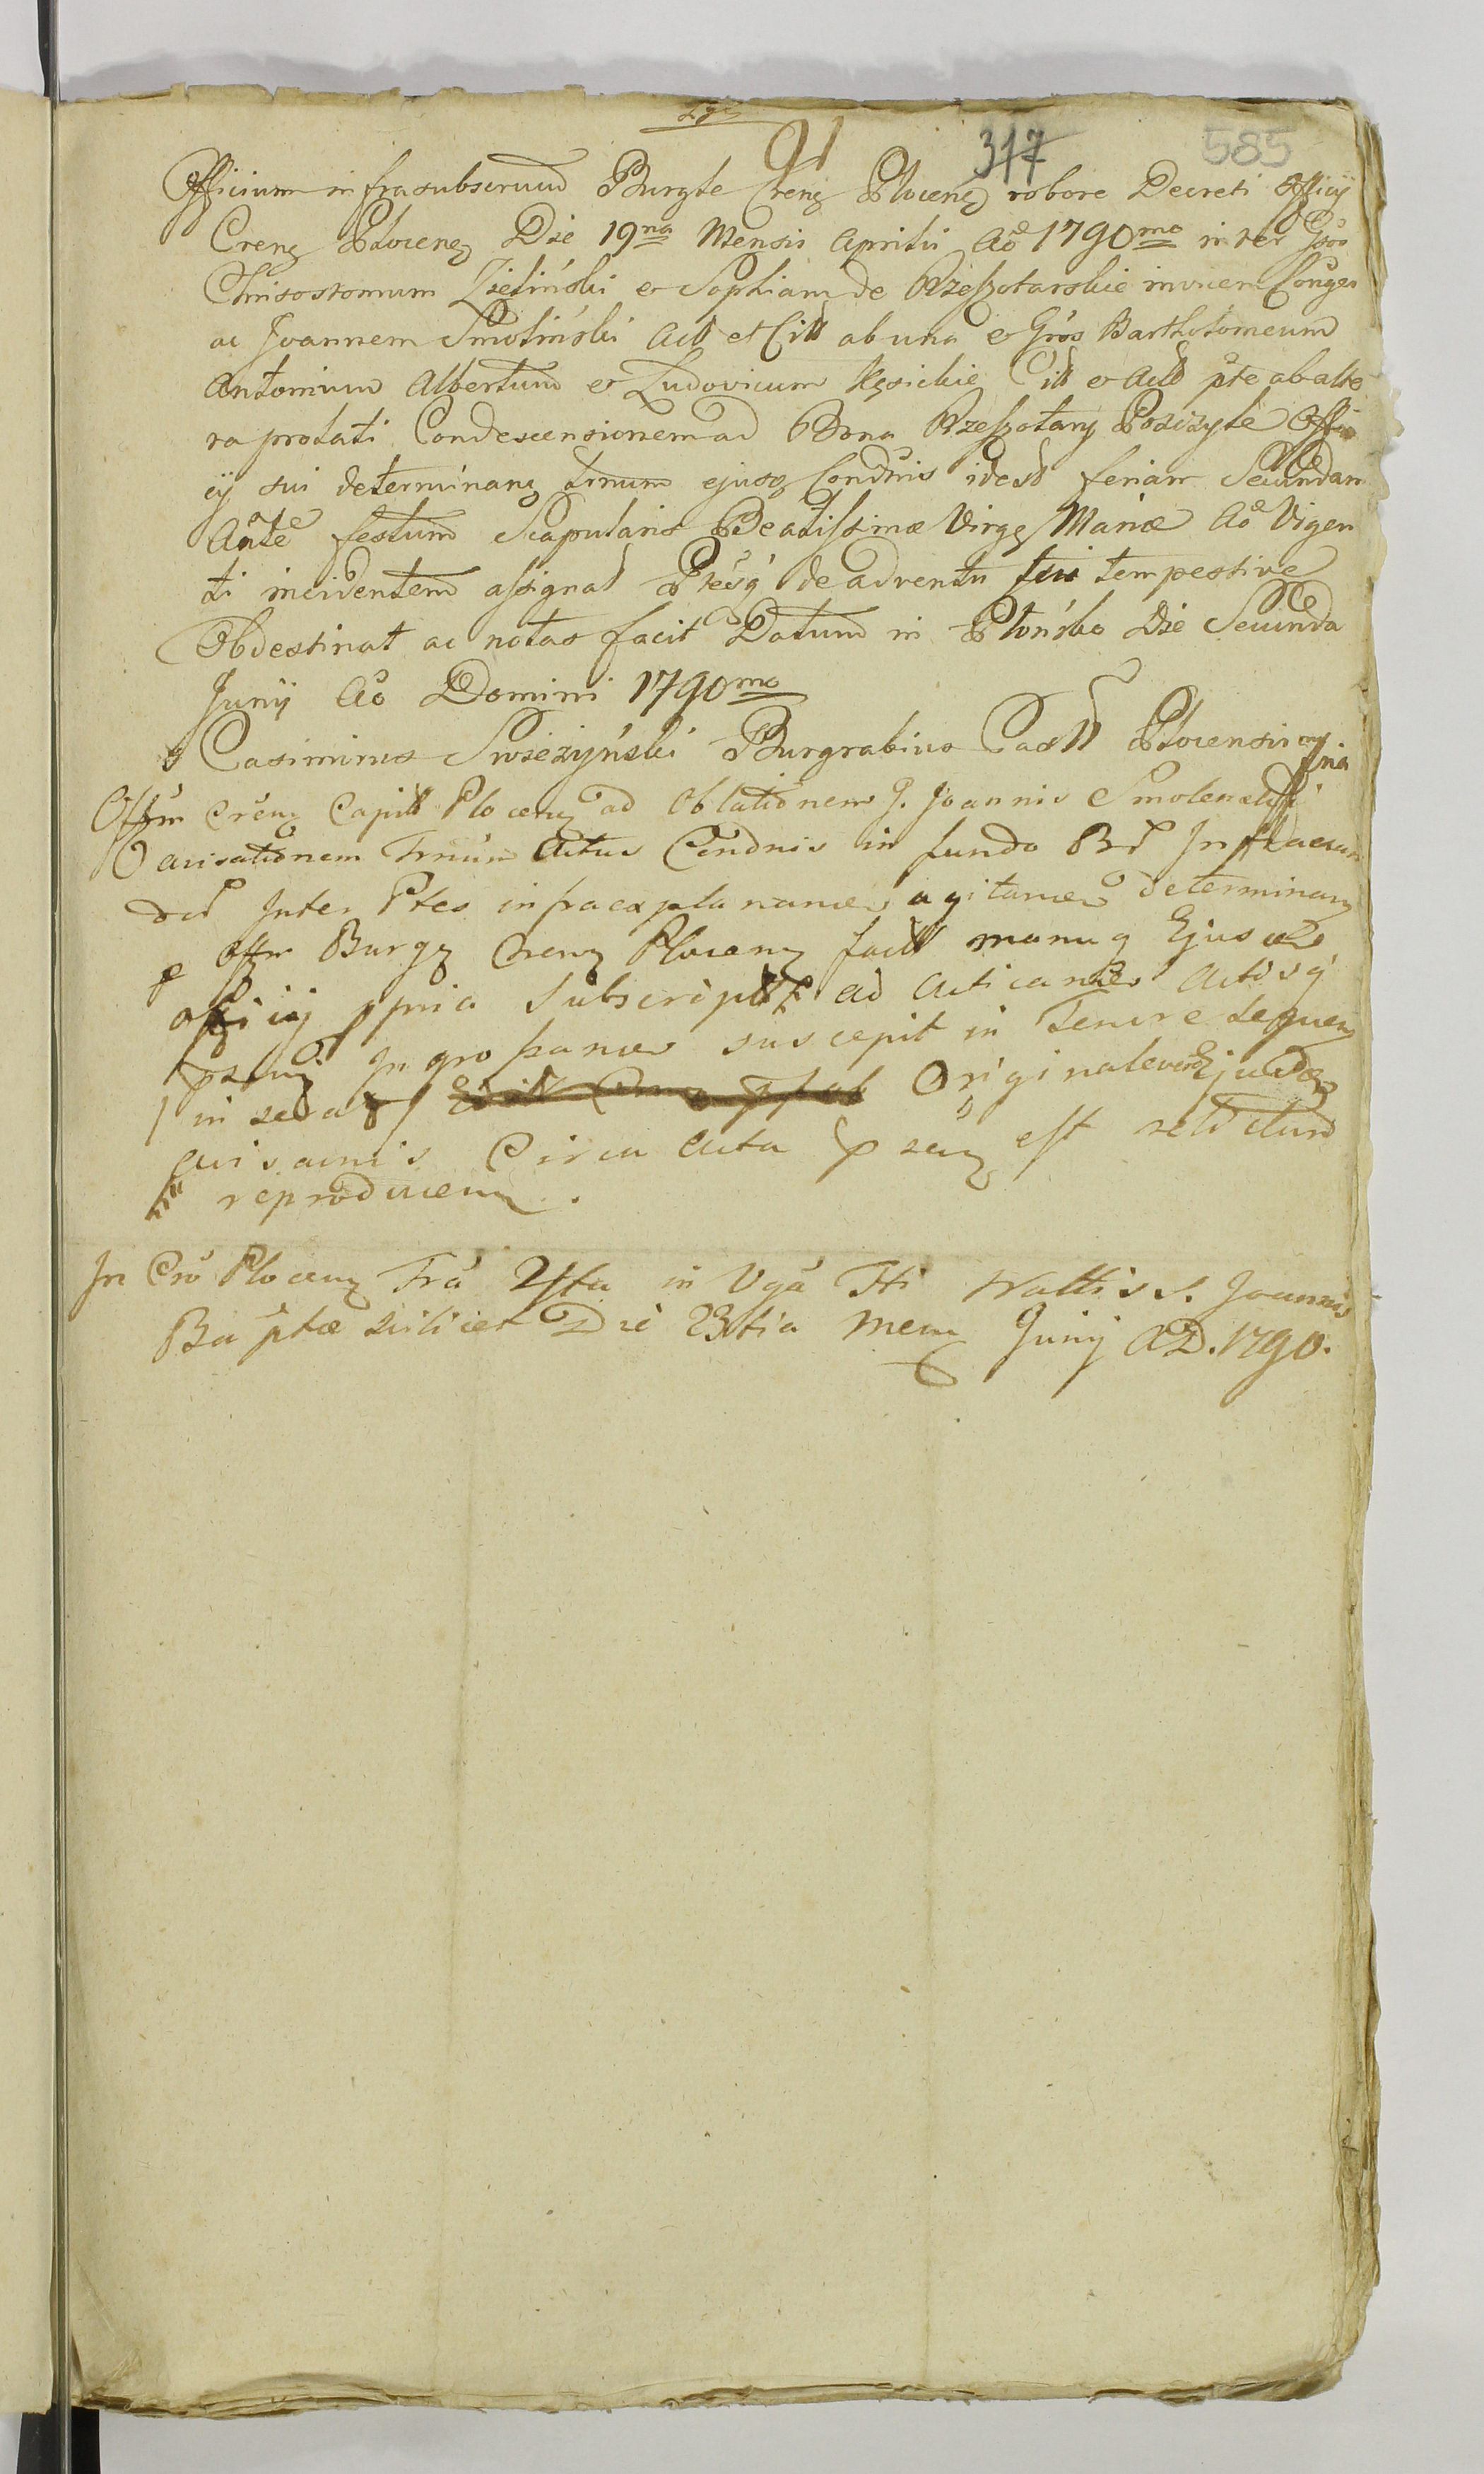 317 585
Officium infrasubscriptum Burgte Creng Ploceng robore Decreti Officij
Creng Ploceng Die 19na Mensis Aprilis Aõ 1790mo inter Gsos
Chrisostomum Zieliński et Sophiam de Rzeszotarskie invicem Conges
ac Joannem Smoliński Actt et Citt ab una et Gsos Bartholomeum
Antonium Albertum et Ludovicum Kęsickie Citt et Actt pte ab alte
ra prolati Condescensionem ad Bona Rzeszotary Pościzyte Offic
ij sui determinang trnum ejusq Condnis idest feriam Secundam
Ante festum Scapularis Beatissimæ Virgs Mariæ Aõ Vigen
ti incidentem assignat Ptesq de adventu sui tempestive
Obdestinat ac notas facit Datum in Płońsko Die Secunda
Junij Aõ Domini 1790mo
Casimirus Swieżyński Burgrabius Castt Plocensis mpria
Offm Creng Capitt Ploceng ad Oblationem G. Joannis Smolenski
avisationem Trnum Actus Condnis in fundo
Inter Ptes infraexplanandas agitandæ determinang
p Offm Burgg Creng Ploceng factt manuq Ejusdem
officij ppria Subscriptt ad Acticandum Actisq
pseng Ingrossandum suscepit in Tenore sequeng
/in seda/ Originale vero Ejusdem
avisaonis Circa Acta pseng est relictum
reproduceng.
In Cro Ploceng Fra 4ta in Vga Fti Nattis S. Joannis
Baptæ scilicet Die 23tia Meng Junij A.D. 1790.